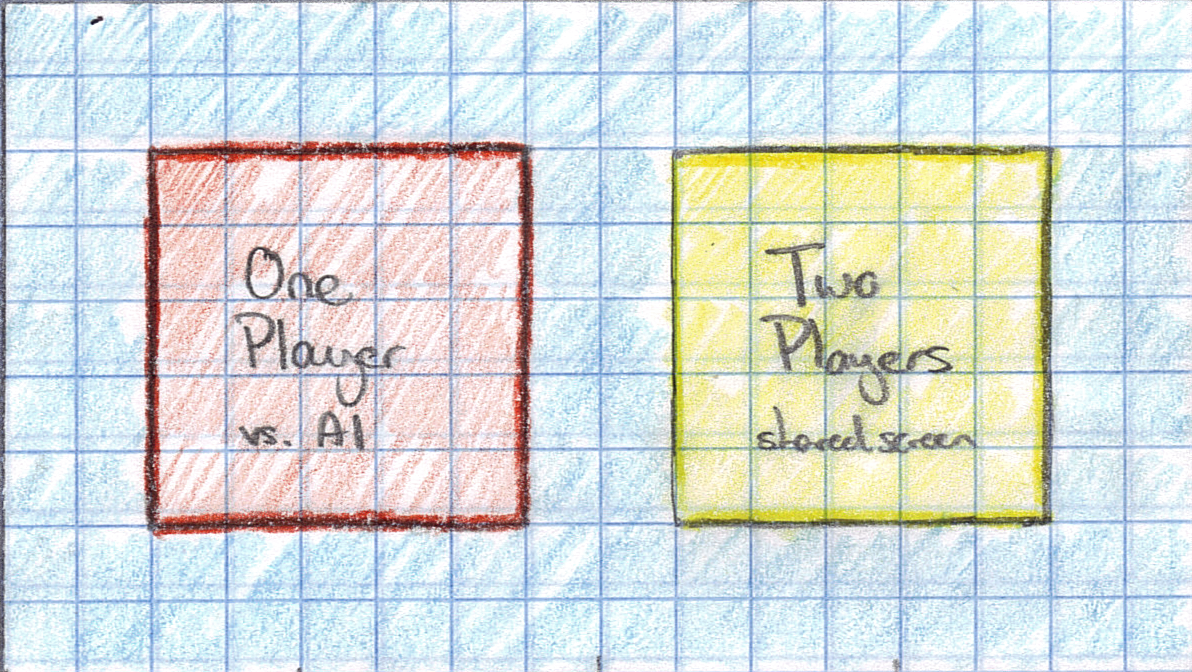 One
Player
vs. AI
Two
Players
shared screen